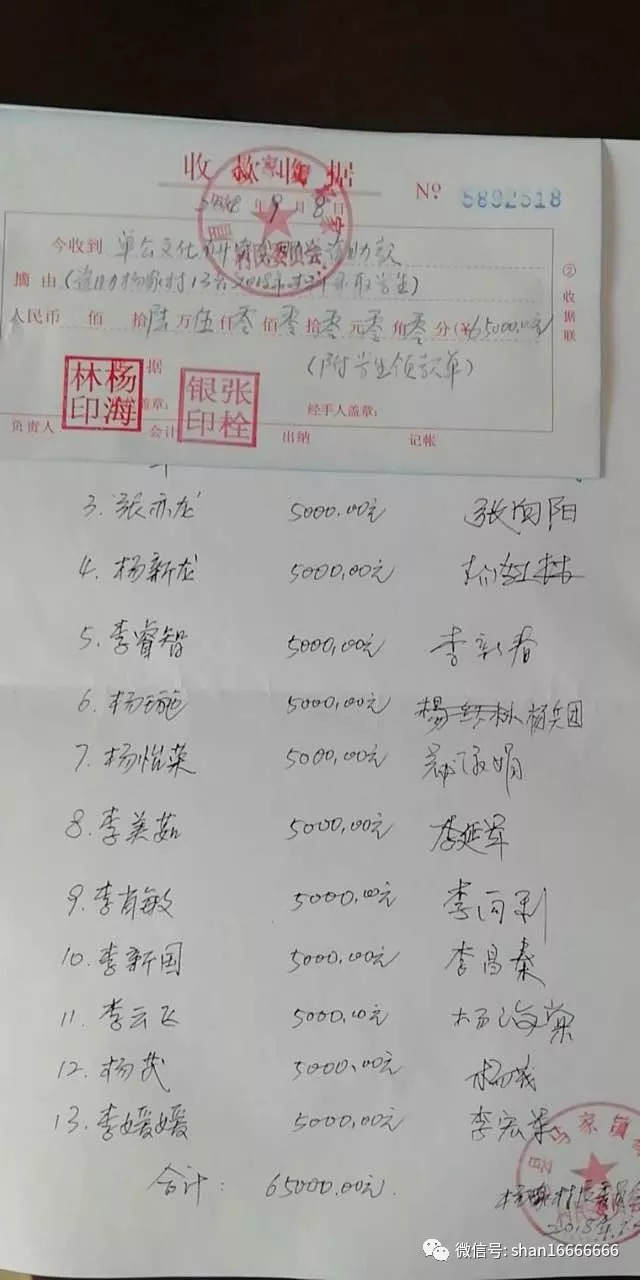 收款收据
年9月8日 № 5892518
今收到 单公文化 助款
摘由(资助杨家村13名2018年 录取学生)
人民币 佰 拾陆万伍仟零佰零拾零元零角零分(¥65000.00元)
(附学生领款单)
② 收据联
杨海林印
张栓银印
据
盖章: 经手人盖章:
负责人 会计 出纳 记帐
3. 张亦龙 5000.00元 张向阳
4. 杨新龙 5000.00元
5. 李睿智 5000.00元 李新春
6. 杨 5000.00元 杨兵团
7. 杨怡荣 5000.00元
8. 李美茹 5000.00元 李延军
9. 李肖敏 5000.00元 李向利
10. 李新国 5000.00元 李昌秦
11. 李云飞 5000.00元 杨海棠
12. 杨茂 5000.00元
13. 李媛媛 5000.00元 李宏
合计: 65000.00元.
马家镇
村民委员会
2018年
微信号: shan16666666